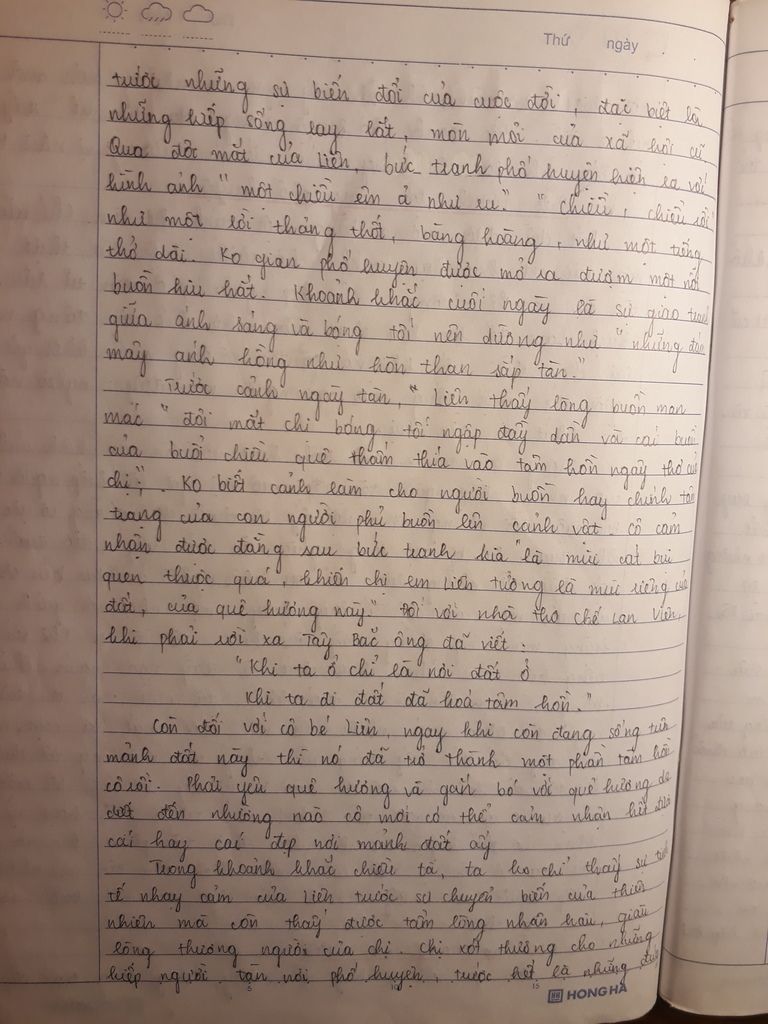 Thứ ngày
trước những sự biến đổi của cuộc đời, đặc biệt là
những kiếp sống lay lắt, mòn mỏi của xã hội cũ
Qua đôi mắt của Liên, bức tranh phố huyện hiện ra với
hình ảnh " một chiều êm ả như ru." " chiều, chiều rồi"
như một lời thảng thốt, bàng hoàng, như một tiếng
thở dài. Ko gian phố huyện được mở ra đượm một nỗi
buồn hiu hắt. Khoảnh khắc cuối ngày là sự giao tranh
giữa ánh sáng và bóng tối nên dường như " những đám
mây ánh hồng như hòn than sắp tàn."
Trước cảnh ngày tàn, " Liên thấy lòng buồn man
mác " đôi mắt chị bóng tối ngập đầy dần và cái buồn
của buổi chiều quê thấm thía vào tâm hồn ngây thơ của
chị". Ko biết cảnh làm cho người buồn hay chính tâm
trạng của con người phủ buồn lên cảnh vật. cô cảm
nhận được đằng sau bức tranh kia "là mùi cát bụi
quen thuộc quá, khiến chị em Liên tưởng là mùi riêng của
đất, của quê hương này." Đối với nhà thơ chế Lan Viên,
khi phải rời xa Tây Bắc ông đã viết:
"Khi ta ở chỉ là nơi đất ở
Khi ta đi đất đã hoá tâm hồn."
Còn đối với cô bé Liên, ngay khi còn đang sống trên
mảnh đất này thì nó đã trở thành một phần tâm hồn
cô rồi. Phải yêu quê hương và gắn bó với quê hương da
diết đến nhường nào cô mới có thể cảm nhận hết được
cái hay cái đẹp nơi mảnh đất ấy
Trong khoảnh khắc chiều tà, ta ko chỉ thấy sự tinh
tế nhạy cảm của Liên trước sự chuyển biến của thiên
nhiên mà còn thấy được tấm lòng nhân hậu, giàu
lòng thương người của chị. Chị xót thương cho những
kiếp người tàn nơi phố huyện, trước hết là những đứa
HONG HA